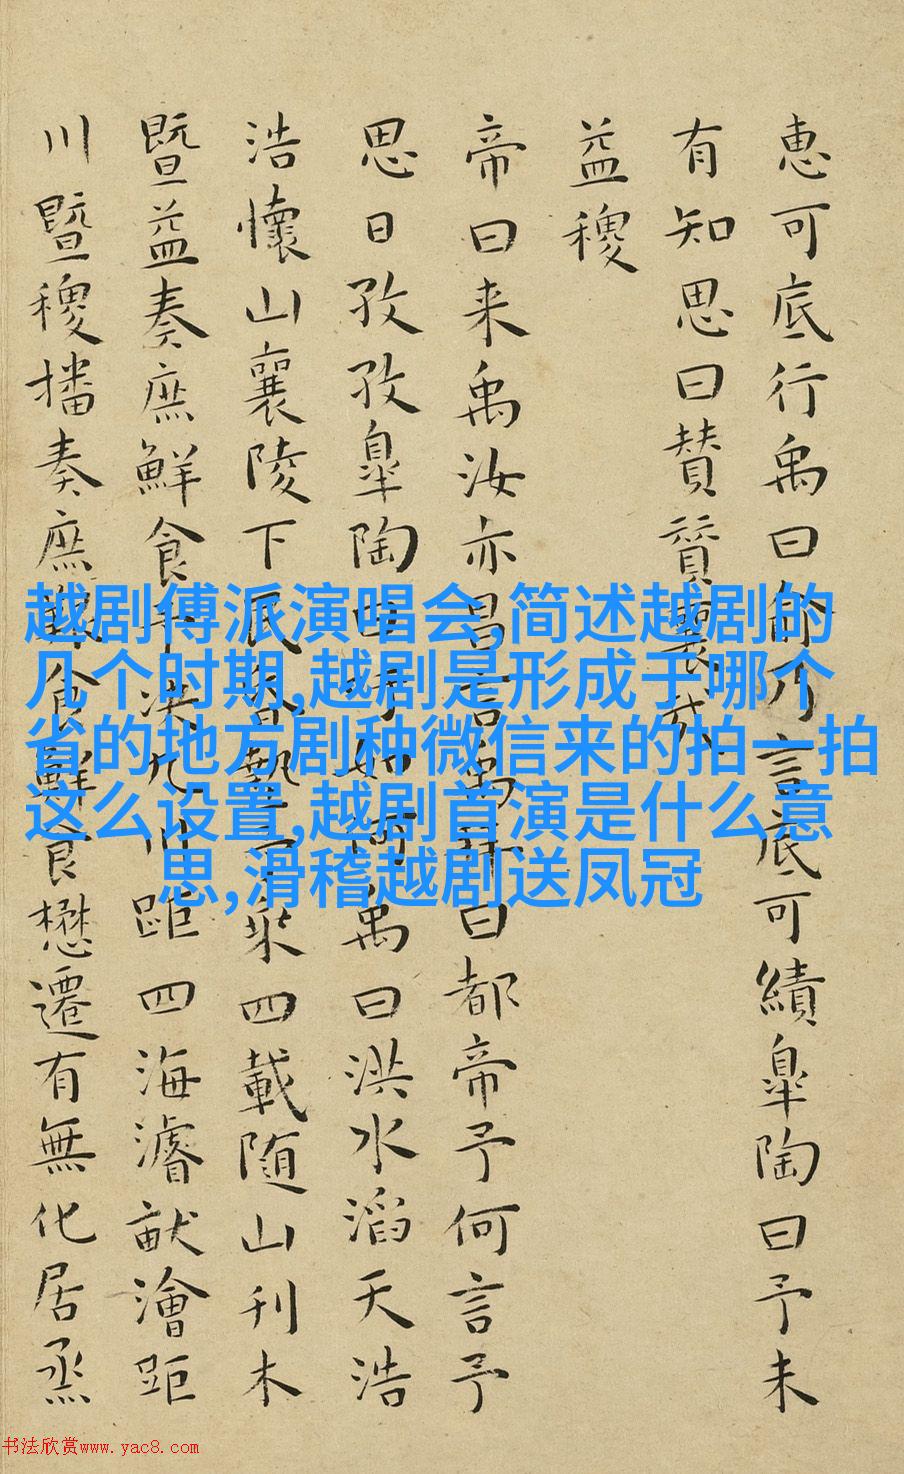 惠可底行禹曰俞乃言底可績皐陶曰予未
有知思曰贊贊襄哉
益稷
帝曰来禹汝亦昌言禹拜曰都帝予何言予
思日孜孜皐陶曰吁如何禹曰洪水滔天浩
浩懷山襄陵下民昏墊予乘四載随山刊木
暨益奏庶鮮食予决九川距四海濬畎澮距
川暨稷播奏庶艱食鮮食懋遷有無化居烝
越剧傅派演唱会,简述越剧的
几个时期,越剧是形成于哪个
省的地方剧种微信来的拍一拍
这么设置,越剧首演是什么意
思,滑稽越剧送凤冠
书法欣赏www.yac8.com